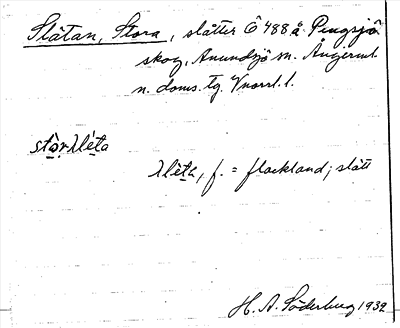 Slåtan, Stora, slåtter Ö 488 å Pengsjö
skog, Anundsjö sn. Ångerml.
n. doms. tg. Vnorrl. l.
flackland; slätt
H. A. Söderberg 1932